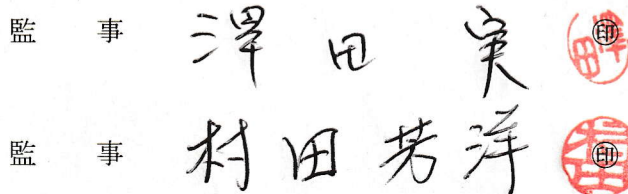 監事 澤田 実 ㊞
監事 村田芳洋 ㊞